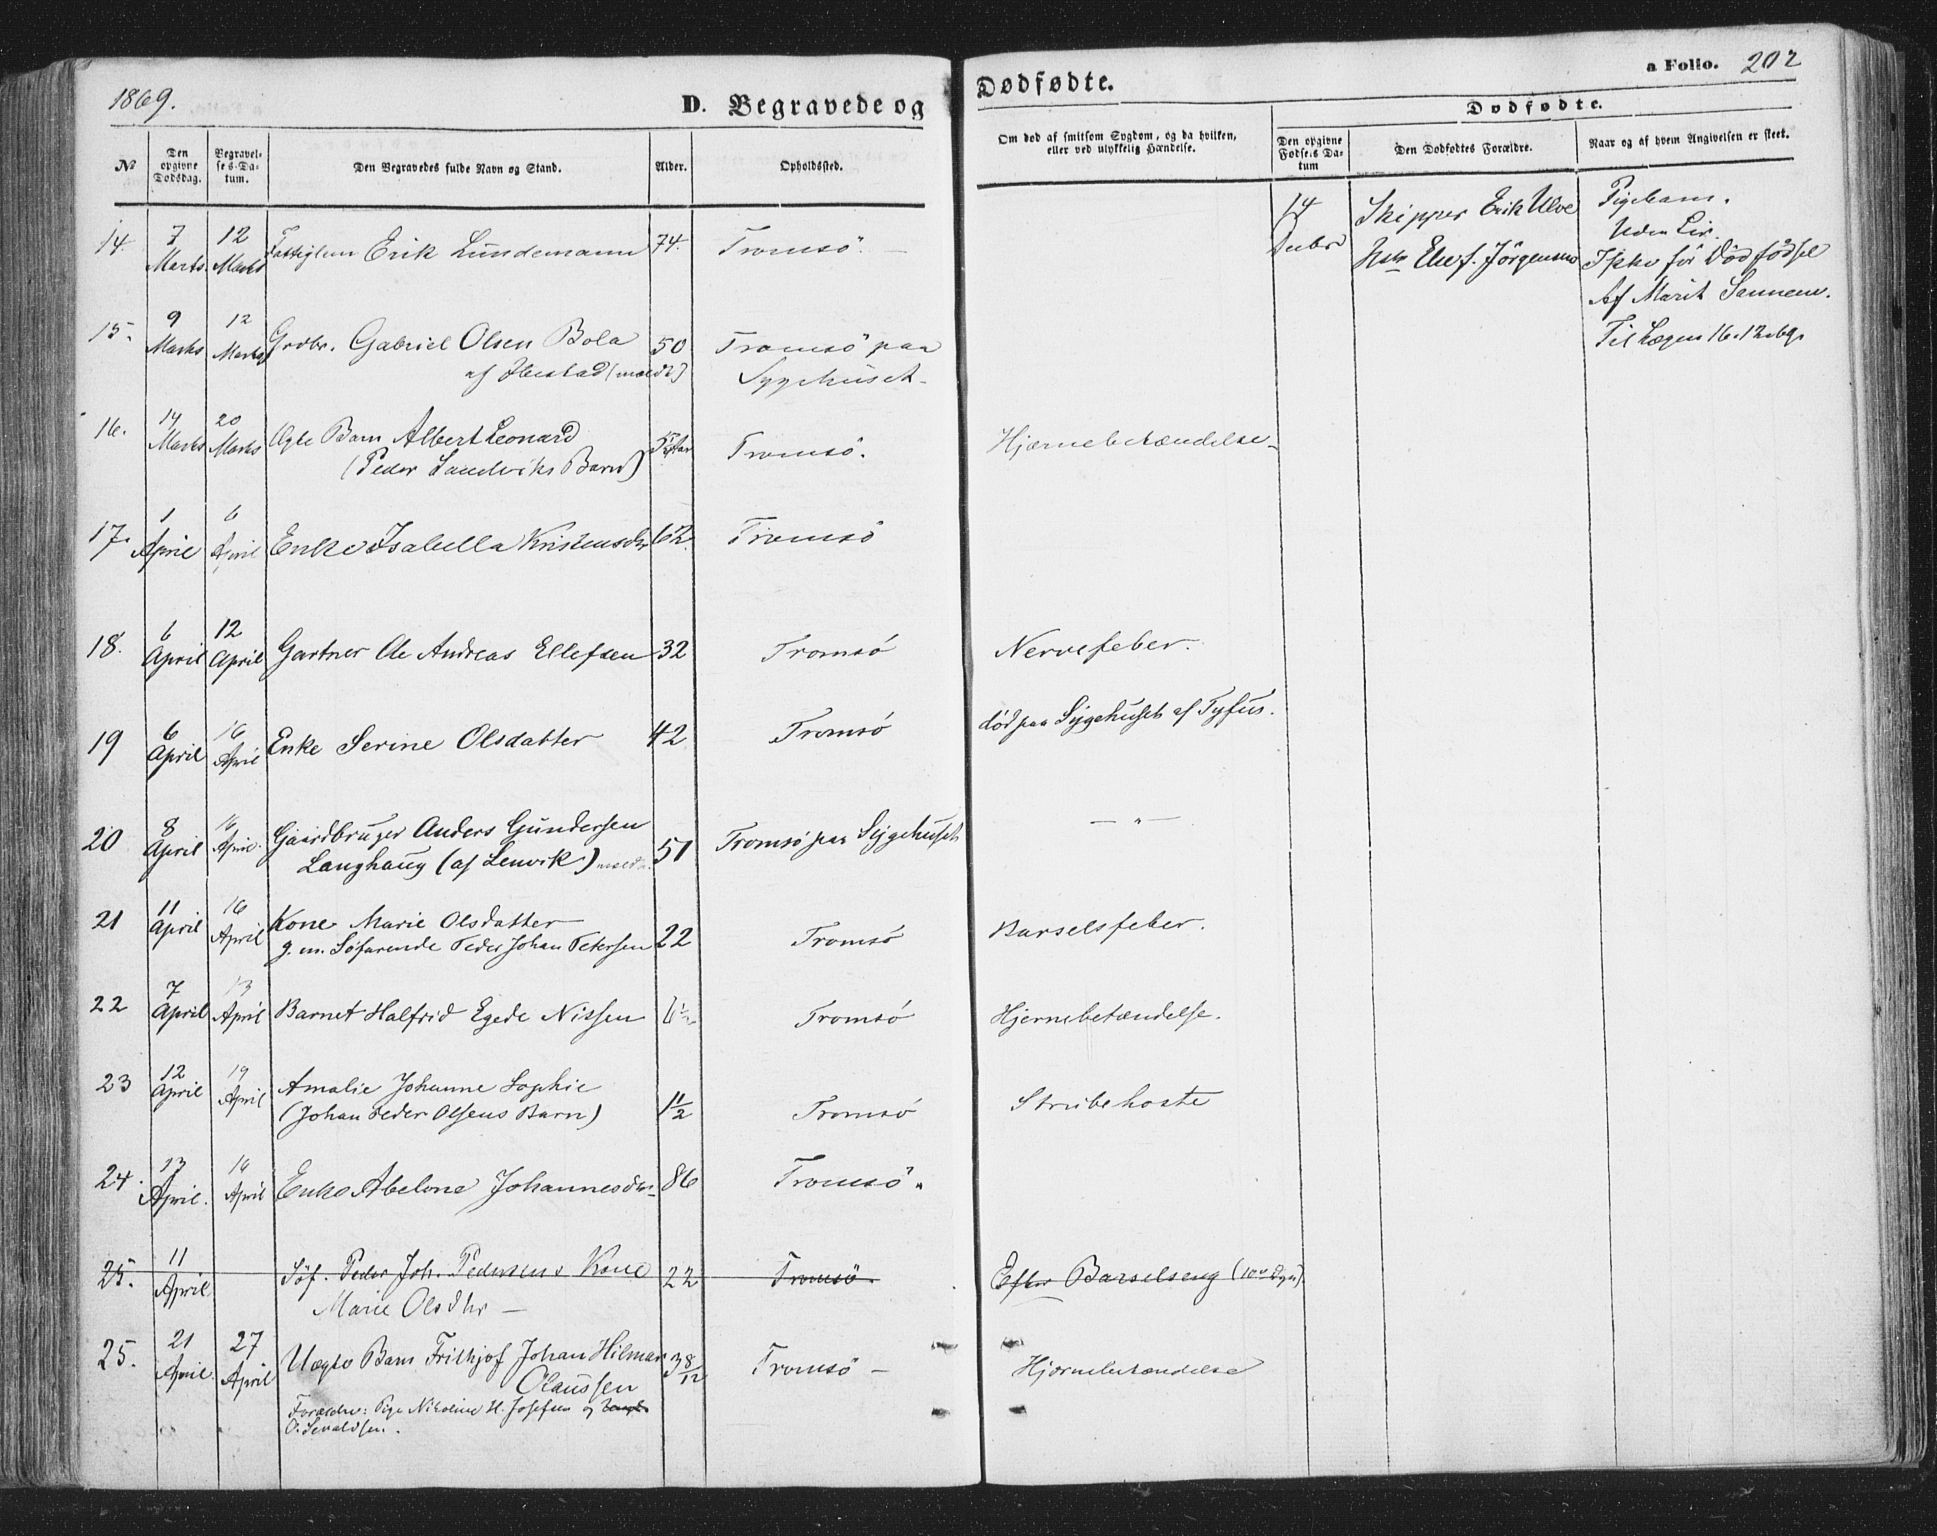 1869.
D. Begravede og
Dødfødte.
a Folio. 202
Dødfødte.
No
Den opgivne Dødsdag.
Begravelses-Datum.
Den Begravedes fulde Navn og Stand.
Alder.
Opholdssted.
Om død af smitsom Sygdom, og da hvilken, eller ved ulykkelig Hændelse.
Den opgivne Fødsels Datum
Den Dødfødtes Forældre.
Naar og af hvem Angivelsen er skeet.
14. 7 Marts 12 Marts Fattiglem Erik Lundemann 74. Tromsö. —
14 Skipper Erik Ulve
Elen f. Jörgensen
Pigebarn.
Uden Liv.
för Dödfödsel
Af Marit
Til Lægen 16.12.69.
15. 9 Marts 12 Marts Grdbr. Gabriel Olsen Bola 50 Tromsö paa
af Ibestad (meldt) Sygehuset.
16. 14 Marts 20 Marts Ægte Barn Albert Leonard Tromsö. Hjernebetændelse
(Peder Sandviks Barn)
17. 1 April 6 April Enke Isabella Kristensdtr 62. Tromsö
18. 6 April 12 April Gartner Ole Andreas Ellefsen 32 Tromsö Nervefeber.
19 6 April 16 April Enke Serine Olsdatter 42 Tromsö död paa Sygehuset af Tyfus.
20 8 April 16 April. Gaardbruger Anders Gundersen Tromsö paa Sygehuset — " —
Langhaug (af Lenvik) meldt. 51
21 11 April 16 April Kone Marie Olsdatter
g. m. Söfarende Peder Johan Petersen 22 Tromsö Barselsfeber.
22 7 April 13 April Barnet Halfrid Egede Nissen 6½ Tromsö Hjernebetændelse.
23 12 April 19 April Amalie Johanne Sophie
(Johan Peder Olsens Barn) 1½ Tromsö Strubehoste
24. 13 April. 16 April Enke Abelone Johannesdtr 86 Tromsö
25. 11 April Söf. Peder Joh. Pedersens Kone 22 Tromsö. Efter Barselseng
Marie Olsdtr —
25. 21 April. 27 April Uægte Barn Frithjof Johan Hilmar 3 8/12 Tromsö — Hjernebetændelse
Olaussen
Forældre: Pige Nikoline H. Josefsen og
O. Sevaldsen.